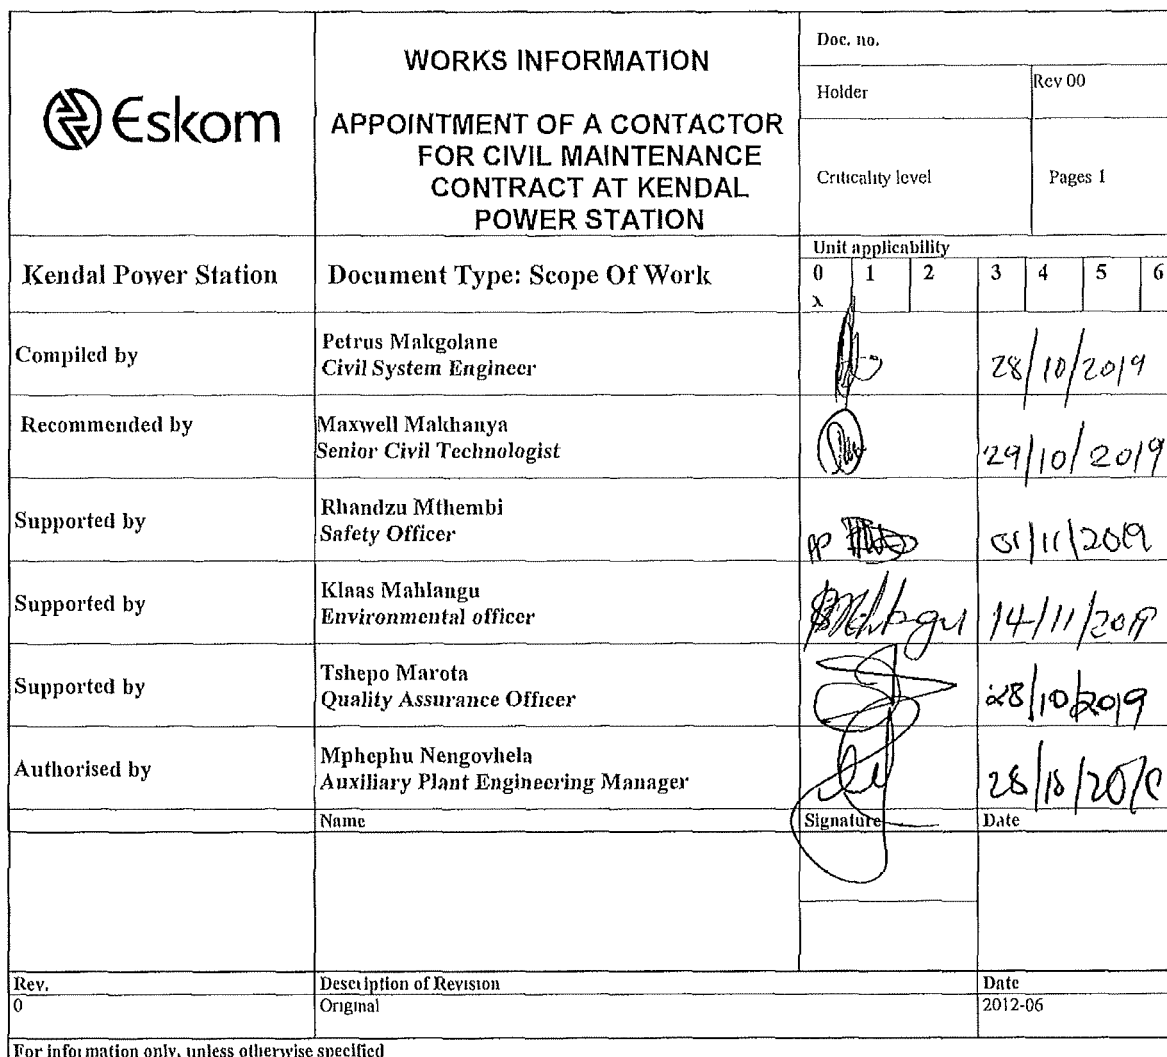 Eskom
WORKS INFORMATION
APPOINTMENT OF A CONTACTOR
FOR CIVIL MAINTENANCE
CONTRACT AT KENDAL
POWER STATION
Doc. no.
Holder
Rev 00
Criticality level
Pages 1
Kendal Power Station
Document Type: Scope Of Work
Unit applicability
0 1 2 3 4 5 6
x
Compiled by
Petrus Makgolane
Civil System Engineer
28/10/2019
Recommended by
Maxwell Makhanya
Senior Civil Technologist
29/10/2019
Supported by
Rhandzu Mthembi
Safety Officer
pp
01/11/2019
Supported by
Klaas Mahlangu
Environmental officer
14/11/2019
Supported by
Tshepo Marota
Quality Assurance Officer
28/10/2019
Authorised by
Mphephu Nengovhela
Auxiliary Plant Engineering Manager
Name
Signature
Date
Rev.
Description of Revision
Date
0
Original
2012-06
For information only, unless otherwise specified